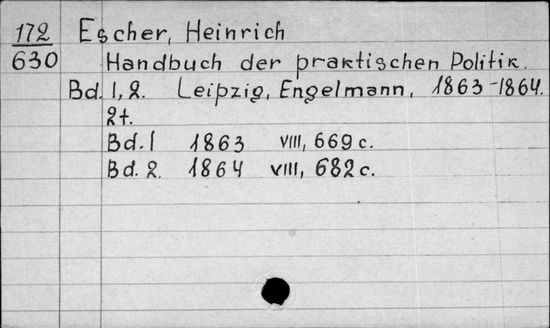 172 Escher, Heinrich
630 Handbuch der praktischen Politik.
Bd. 1, 2. Leipzig, Engelmann, 1863-1864.
2t.
Bd. 1 1863 VIII, 669 c.
Bd. 2. 1864 VIII, 682 c.